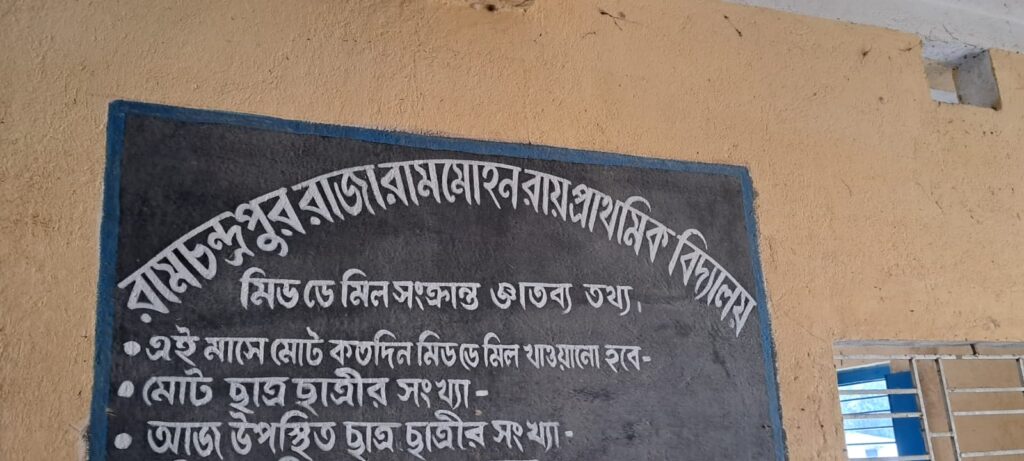 রামচন্দ্রপুর রাজা রামমোহন রায় প্রাথমিক বিদ্যালয়
মিড ডে মিল সংক্রান্ত জ্ঞাতব্য তথ্য.
• এই মাসে মোট কতদিন মিড ডে মিল খাওয়ানো হবে-
• মোট ছাত্র ছাত্রীর সংখ্যা-
• আজ উপস্থিত ছাত্র ছাত্রীর সংখ্যা-